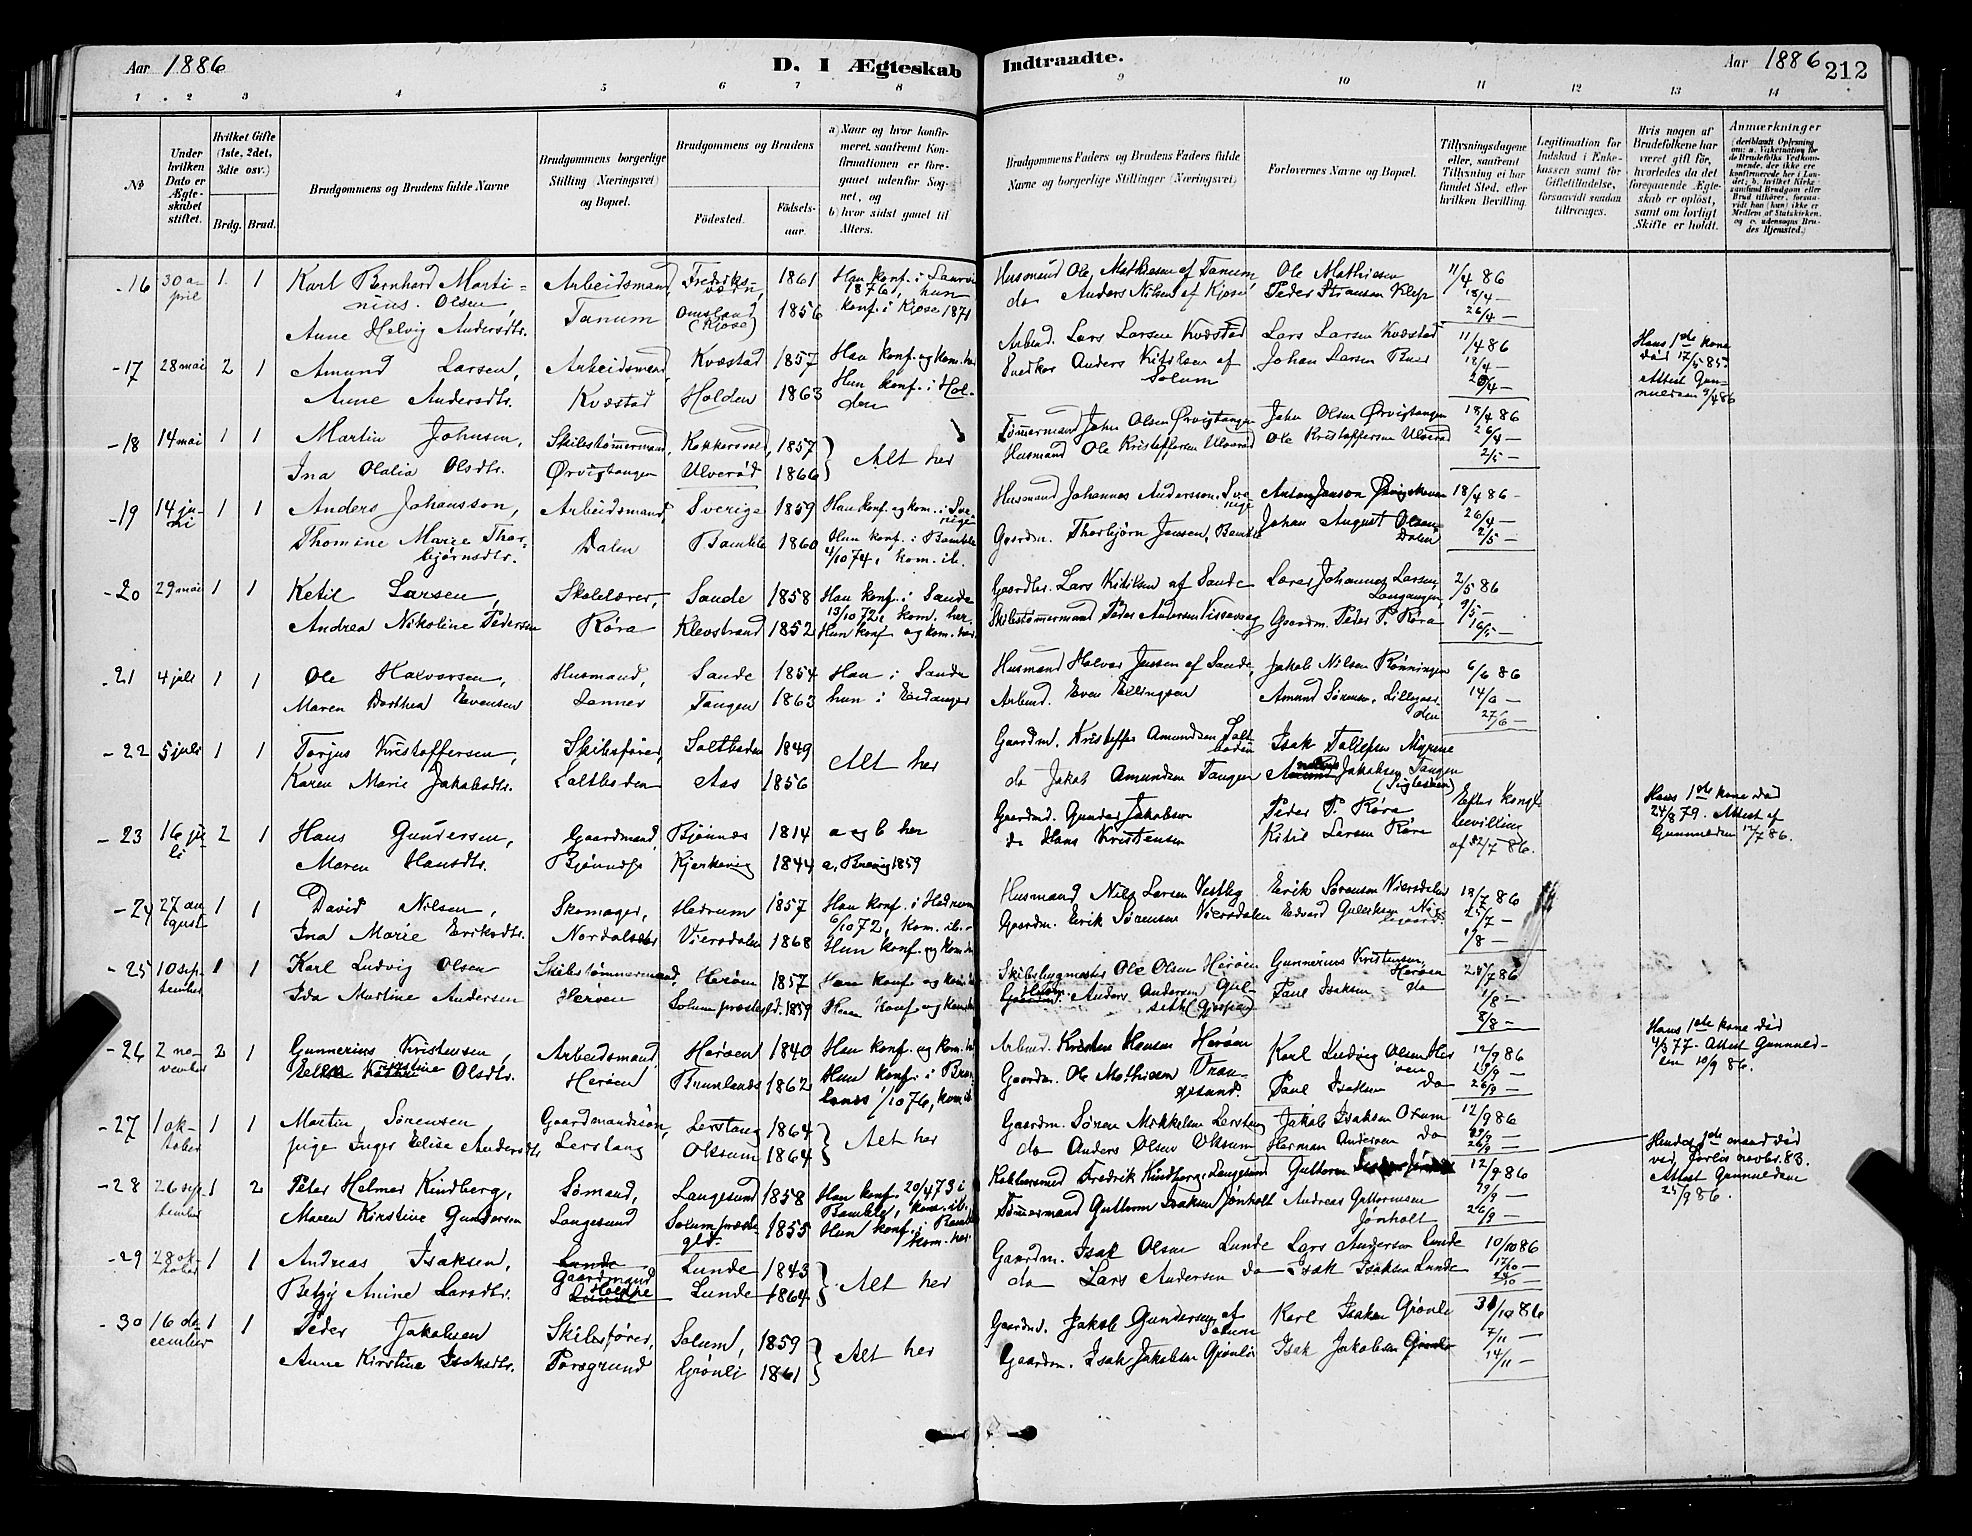 Aar 1886
D. I Ægteskab Indtraadte.
Aar 1886
212
1 2 3 4 5 6 7 8 9 10 11 12 13 14
No
Under hvilken Dato er Ægteskabet stiftet.
Hvilket Gifte (1ste, 2det, 3die osv.)
Brdg. Brud.
Brudgommens og Brudens fulde Navne
Brudgommens borgerlige Stilling (Næringsvei) og Bopæl.
Brudgommens og Brudens
Fødested.
Fødselsaar.
a) Naar og hvor konfirmeret, saafremt Konfirmationen er foregaaet udenfor Sognet, og
b) hvor sidst gaaet til Alters.
Brudgommens Faders og Brudens Faders fulde Navne og borgerlige Stillinger (Næringsvei)
Forlovernes Navne og Bopæl.
Tillysningsdagene eller, saafremt Tillysning ei har fundet Sted, efter hvilken Bevilling.
Legitimation for Indskud i Enkekassen samt for Giftetilladelse, forsaavidt saadan tiltrænges.
Hvis nogen af Brudefolkene har været gift før, hvorledes da det foregaaende Ægteskab er opløst, samt om lovligt Skifte er holdt.
Anmærkninger
16 30 april 1 1 Karl Bernhard Martinius Olsen, Arbeidsmand, Fredriksværn, 1861 Han konf. i Laurvig 1876, hun Husmand Ole Mathiesen af Tanum, Ole Mathiesen 11/4 86
Anne Helvig Andersdtr. Tanum Omsland (Kjose) 1856 konf. i Kjose 1871 do Anders Nilsen af Kjose Peder Struksen Klep 18/4 — 26/4 —
17 28 mai 2 1 Amund Larsen, Arbeidsmand, Kvæstad 1857 Han konf. og kom. her Arbmd. Lars Larsen Kvæstad Lars Larsen Kvæstad 11/4 86 Hans 1ste kone død 17/5 85.
Anne Andersdtr. Kvæstad Holden 1863 Hun konf. i Holden Snedker Anders Kittilsen af Solum Johan Larsen 18/4 — 26/4 — Attest Gunneklean 9/4 86
18 14 mai 1 1 Martin Johnsen, Skibstømmermand, Kokkersvold, 1857 Alt her Tømmermand John Olsen Ørvigtangen John Olsen Ørvigtangen 18/4 86
Ina Olalia Olsdtr. Ørvigtangen Ulverød 1866 Husmand Ole Kristoffersen Ulverød Ole Kristoffersen Ulverød 26/4 — 2/5 —
19 14 juni 1 1 Anders Johansson, Arbeidsmand, Sverige 1859 Han konf. og kom. i Sverige Husmand Johannes Andersson. Sverige Anton Janson 18/4 86 —
Thomine Marie Thorbjørnsdtr. Dalen Bamble 1860 Hun konf. i Bamble 4/10 74, kom. ib. Gaardm. Thorbjørn Jensen, Bamble Johan August Olsen Dalen 26/4 — 2/5 —
20 29 mai 1 1 Ketil Larsen, Skolelærer, Sande 1858 Han konf. i Sande 13/10 72, kom. her. Gaardbr. Lars Kittilsen af Sande Lærer Johannes Larsen, Langangen, 2/5 86
Andrea Nikoline Pedersen Røra Klevstrand 1852 Hun konf og kom. her. Skibstømmermand Peder Andersen Gaardm. Peder P. Røra 9/5 — 16/5 —
21 4 juli 1 1 Ole Halvorsen, Husmand, Sande 1854 Han i Sande Husmand Halvor Jensen af Sande, Jakob Nilsen Rønningen 6/6 86
Maren Dorthea Evensen Lanner Tangen 1863 hun i Eidanger Arbmd. Even Ellingsen Amund Sørensen, Lillegaarden 14/6 — 27/6 —
22 5 juli 1 1 Torjus Kristoffersen, Skibsfører, Saltboden 1849 Alt her Gaardm. Kristoffer Amundsen Saltboden Isak Tollefsen Myrene
Karen Marie Jakobsdtr. Saltboden Aas 1856 do Jakob Amundsen Tangen Jakobsen Tangen
23 16 juli 2 1 Hans Gundersen, Gaardmand, Bjønnes 1814 a og b her Gaardmd. Gunder Jakobsen Peder P. Røra Efter kongl. bevilling Hans 1ste kone død 24/8 79. Attest af
Maren Hansdtr. Bjønnes Kjerkevig 1844 a, Brevig 1859 do Hans Kristensen Kitil Larsen Røra af 12/7 86. Gunneklean 12/7 86.
24 27 august 1 1 David Nilsen, Skomager, Hedrum 1857 Han konf. i Hedrum 6/10 72, kom. ib. Husmand Nils Larsen Vestby Erik Sørensen Viersdalen 18/7 86
Ina Marie Eriksdtr. Nordals Viersdalen 1868 Hun konf. og kom her Gaardm. Erik Sørensen Viersdalen Edvard Gulliksen 25/7 — 1/8 —
25 10 september 1 1 Karl Ludvig Olsen Skibstømmermand, Herøen 1857 Han konf. og kom. her Skibsbygmester Ole Olsen Herøen Gunnerius Kristensen, Herøen 25/7 86
Ida Martine Andersen Herøen Solum præstegjld. 1859 Hun konf. og kom her Anders Andersen (Gjerpen) Paul Isaksen do 1/8 — 8/8 —
26 2 november 2 1 Gunnerius Kristensen, Arbeidsmand, Herøen 1840 Han konf. og kom. her Arbmd. Kristen Hansen Herøen Karl Ludvig Olsen Herøen 12/9 86 Hans 1ste kone død 4/3 77. Attest Gunneklean 10/9 86.
Kirstine Olsdtr. Herøen Brunlanes 1862 Hun konf. i Brunlanes 1/10 76, kom. Gaardm. Ole Mathisen Paul Isaksen do 19/9 — 26/9 —
27 1 oktober 1 1 Martin Sørensen Gaardmandssøn, Lerstang 1864 Alt her Gaardm. Søren Mikkelsen Lerstang Jakob Isaksen Oxum 12/9 86
pige Inger Elise Andersdtr Lerstang Oksum 1864 do Anders Olsen Oksum Herman Andersen do 19/9 — 26/9 —
28 26 september 1 2 Peter Helmer Kindberg, Sømand, Langesund 1858 Han konf. 20/4 73 i Bamble, kom. ib. Fredrik Kindberg, Langesund Guttorm 12/9 86 Hendes 1ste mand død ved novbr. 83. Attest Gunneklean 25/9 86.
Maren Kirstine Gundersen Langesund Solum præstegld. 1855 Hun konf. i Bamble, kom. her. Tømmermand Guttorm Isaksen Jønholt Andreas Guttormsen Jønholt 19/9 — 26/9 —
29 28 oktober 1 1 Andreas Isaksen, Lunde Gaardmand Lunde 1843 Alt her Gaardm. Isak Olsen Lunde Lars Andersen Lunde 10/10 86
Betzy Anine Larsdtr. Lunde 1864 do Lars Andersen do Isak Isaksen Lunde 17/10 — 24/10 —
30 16 december 1 1 Peder Jakobsen Skibsfører, Solum, 1859 Alt her Gaardmd. Jakob Gundersen af Solum Karl Isaksen Grønli 31/10 86
Anne Kirstine Isaksdtr. Porsgrund Grønli 1861 Gaardm. Isak Jakobsen Grønli Isak Jakobsen Grønli 7/11 — 14/11 —